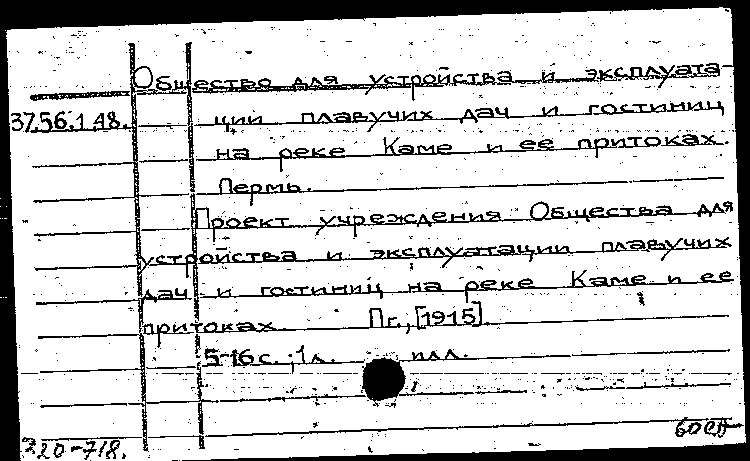 Общество для устройства и эксплуата-
37.56.1.48. ции плавучих дач и гостиниц
на реке Каме и ее притоках.
Пермь.
Проект учреждения Общества для
устройства и эксплуатации плавучих
дач и гостиниц на реке Каме и ее
притоках. Пг., [1915].
5-16 с.; 1 л. илл.
220-718.